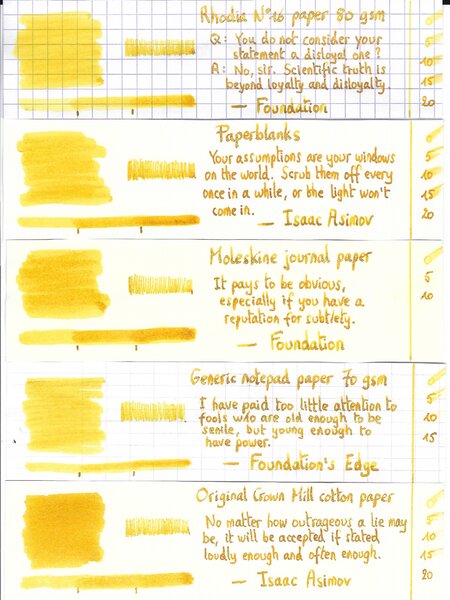 Rhodia N°16 paper 80 gsm
Q: You do not consider your
statement a disloyal one?
A: No, sir. Scientific truth is
beyond loyalty and disloyalty.
— Foundation
5
10
15
20
Paperblanks
Your assumptions are your windows
on the world. Scrub them off every
once in a while, or the light won't
come in.
— Isaac Asimov
5
10
15
20
Moleskine journal paper
It pays to be obvious,
especially if you have a
reputation for subtlety.
— Foundation
5
10
Generic notepad paper 70 gsm
I have paid too little attention to
fools who are old enough to be
senile, but young enough to
have power.
— Foundation's Edge
5
10
15
Original Crown Mill cotton paper
No matter how outrageous a lie may
be, it will be accepted if stated
loudly enough and often enough.
— Isaac Asimov
5
10
15
20